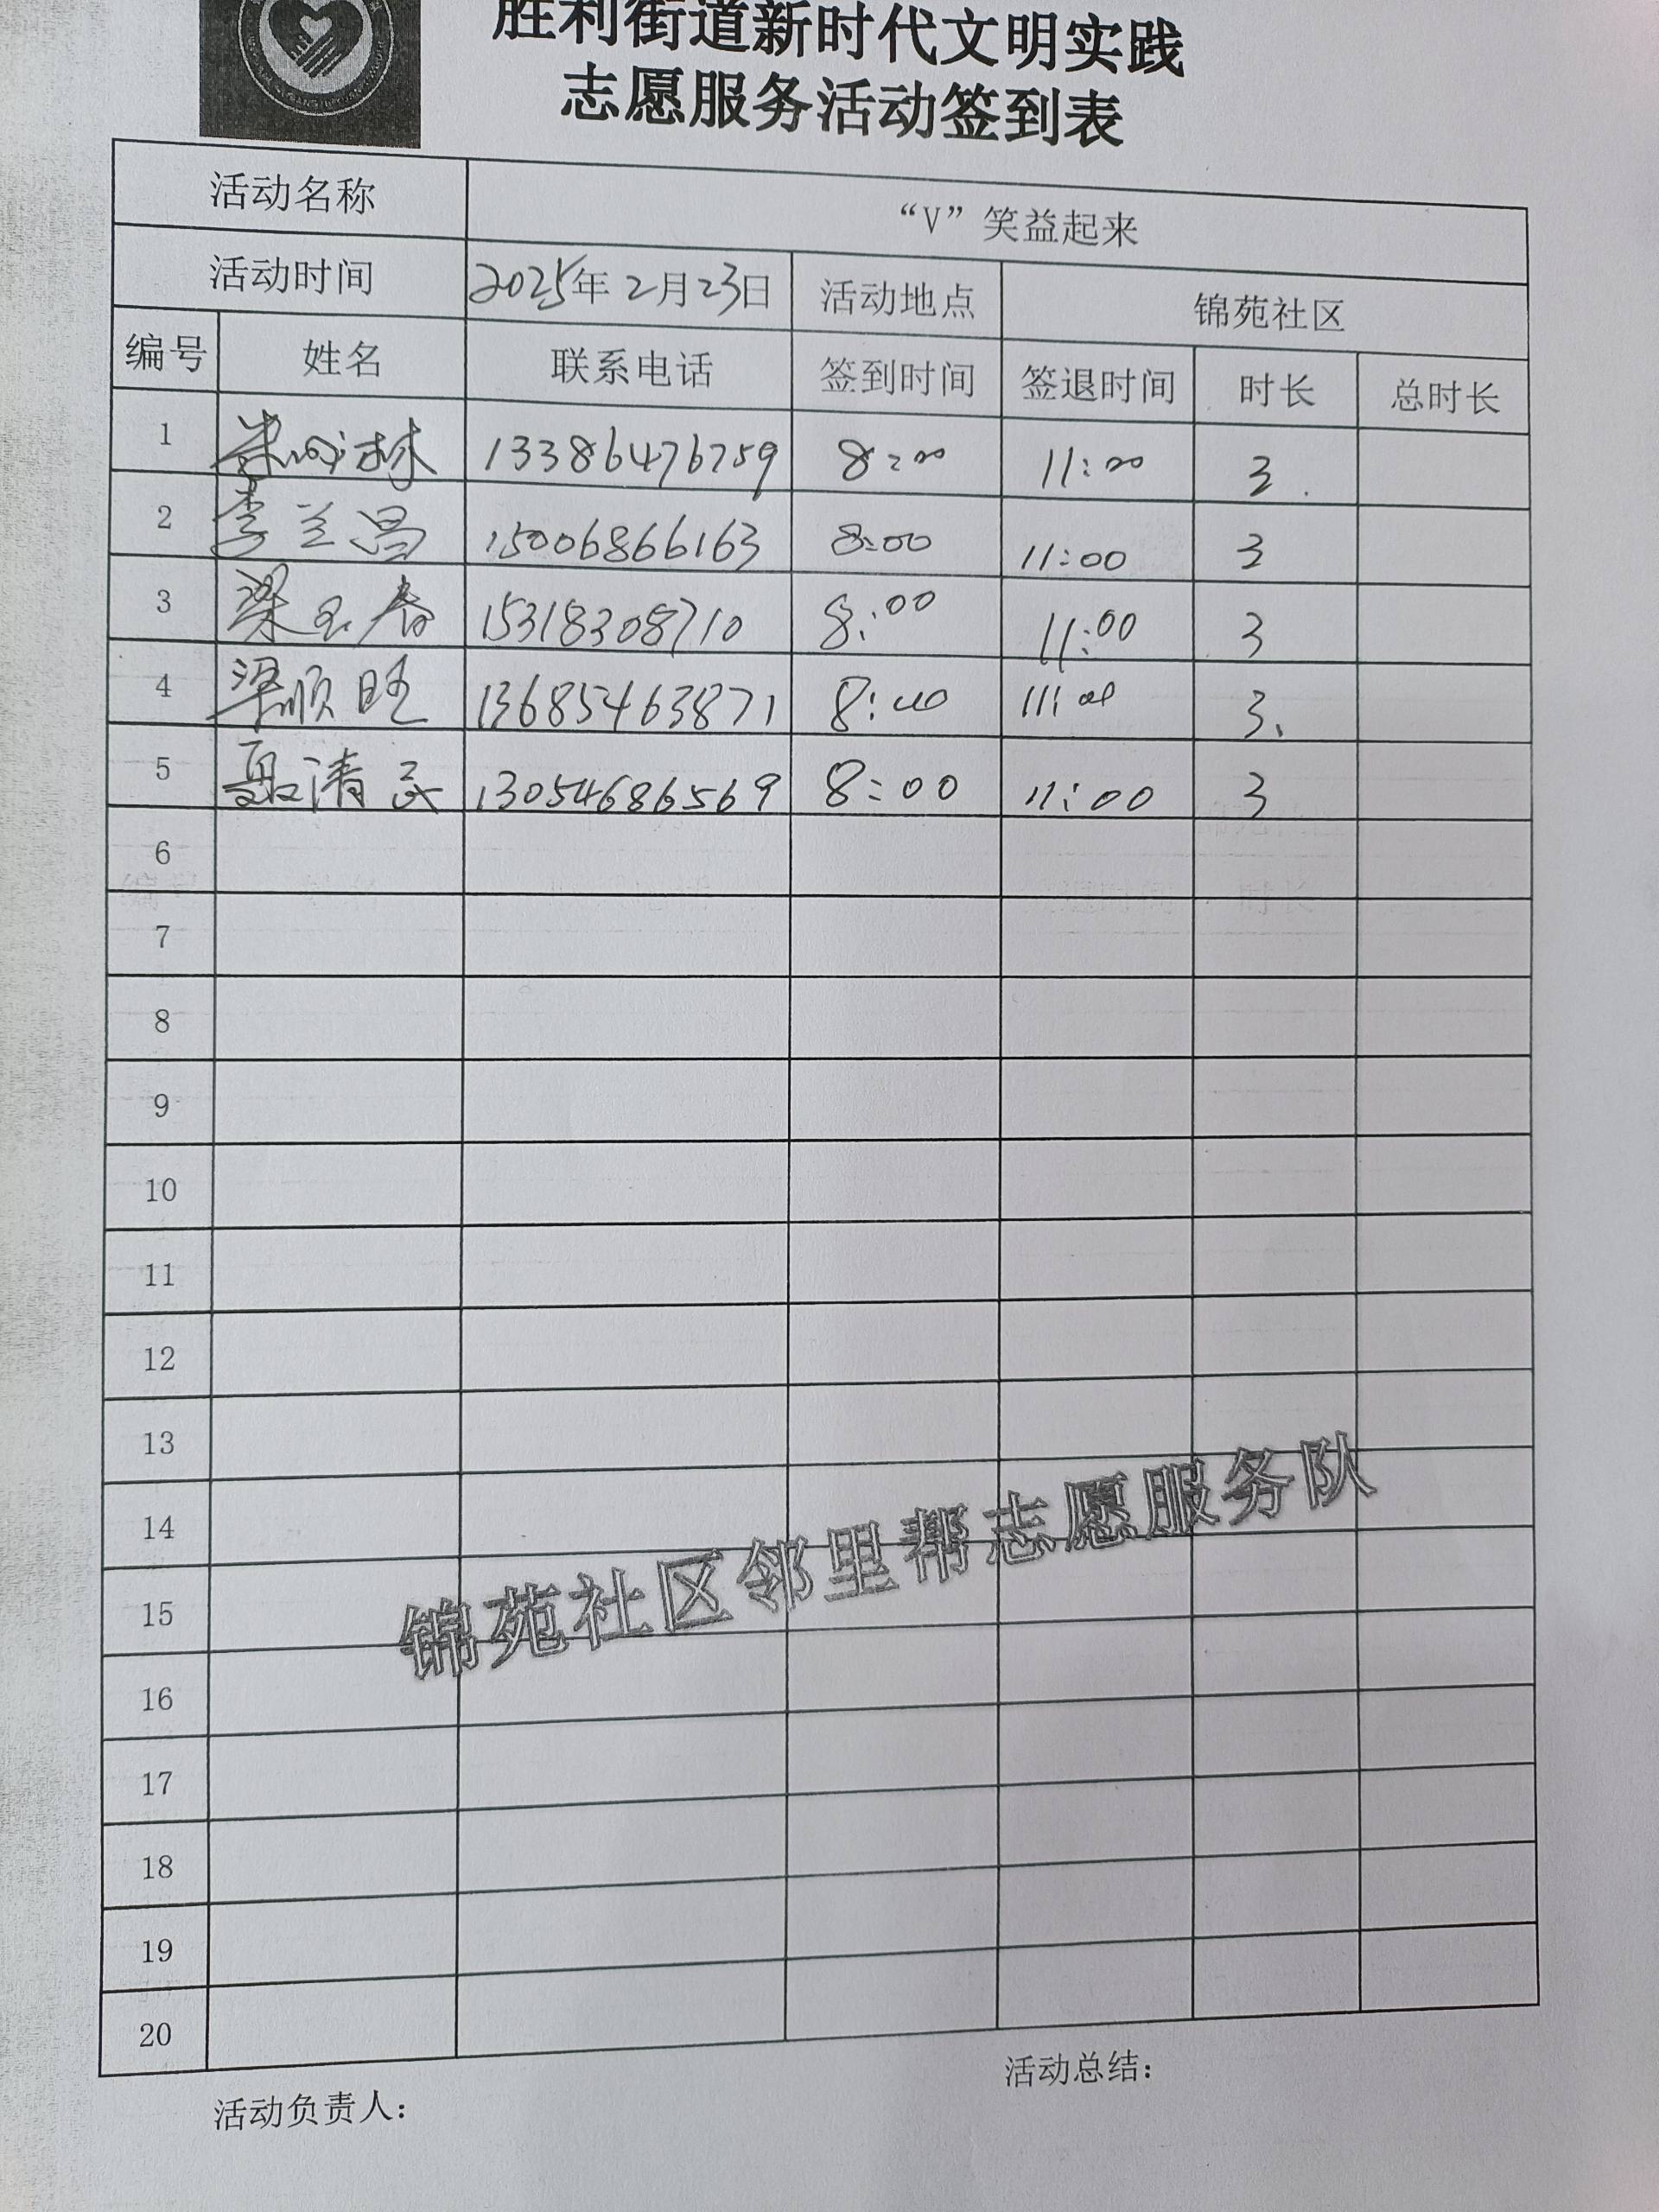 胜利街道新时代文明实践
志愿服务活动签到表
活动名称 “V”笑益起来
活动时间 2025年2月23日 活动地点 锦苑社区
编号 姓名 联系电话 签到时间 签退时间 时长 总时长
1 13386476759 8:00 11:00 3
2 李兰昌 15006866163 8:00 11:00 3
3 梁玉春 15318308710 8:00 11:00 3
4 梁顺旺 13685463871 8:00 11:00 3
5 聂清民 13054686569 8:00 11:00 3
6
7
8
9
10
11
12
13
14
15
16
17
18
19
20
锦苑社区邻里帮志愿服务队
活动负责人: 活动总结: